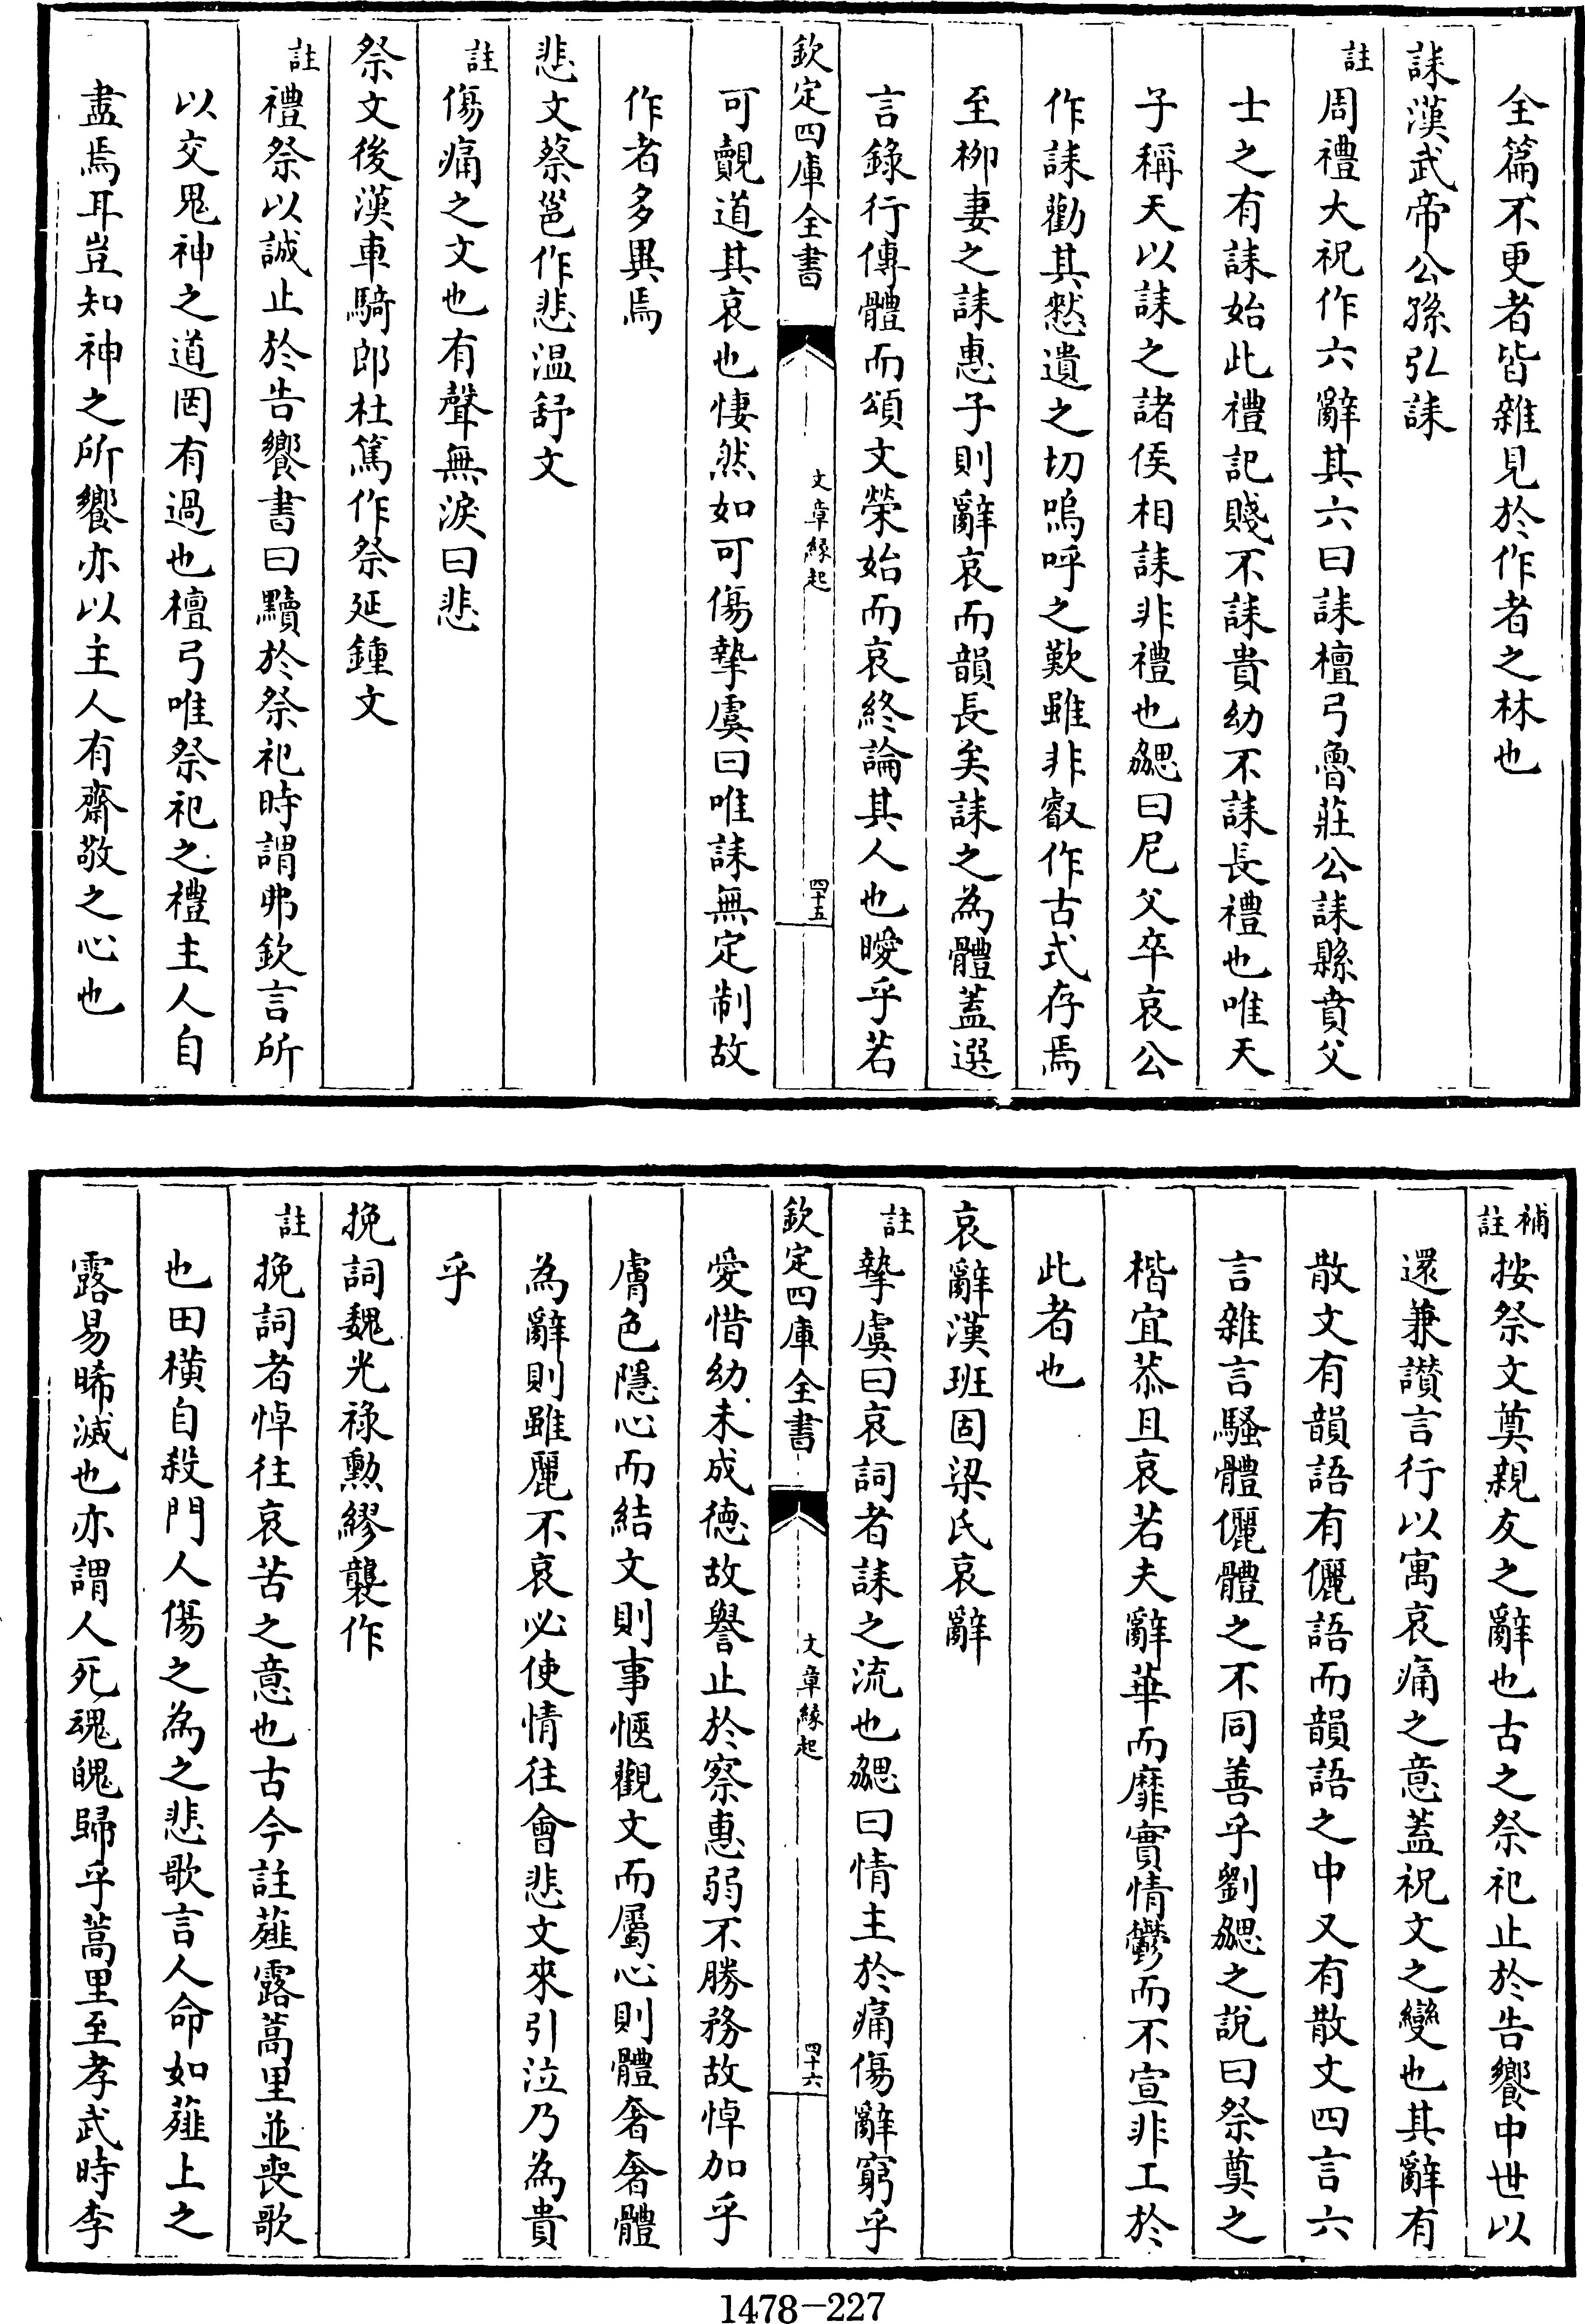 全篇不更者皆雜見於作者之林也
誄漢武帝公孫弘誄
註周禮大祝作六辭其六曰誄檀弓魯莊公誄縣賁父
士之有誄始此禮記賤不誄貴幼不誄長禮也唯天
子稱天以誄之諸侯相誄非禮也勰曰尼父卒哀公
作誄勸其憖遺之切嗚呼之歎雖非叡作古式存焉
至柳妻之誄惠子則辭哀而韻長矣誄之為體蓋選
言錄行傳體而頌文榮始而哀終論其人也曖乎若
欽定四庫全書
文章緣起
四十五
可覿道其哀也悽然如可傷摯虞曰唯誄無定制故
作者多異焉
悲文蔡邕作悲溫舒文
註傷痛之文也有聲無淚曰悲
祭文後漢車騎郎杜篤作祭延鍾文
註禮祭以誠止於告饗書曰黷於祭祀時謂弗欽言所
以交鬼神之道罔有過也檀弓唯祭祀之禮主人自
盡焉耳豈知神之所饗亦以主人有齋敬之心也
補註按祭文奠親友之辭也古之祭祀止於告饗中世以
還兼讚言行以寓哀痛之意蓋祝文之變也其辭有
散文有韻語有儷語而韻語之中又有散文四言六
言雜言騷體儷體之不同善乎劉勰之說曰祭奠之
楷宜恭且哀若夫辭華而靡實情鬱而不宣非工於
此者也
哀辭漢班固梁氏哀辭
註摯虞曰哀詞者誄之流也勰曰情主於痛傷辭窮乎
欽定四庫全書
文章緣起
四十六
愛惜幼未成德故譽止於察惠弱不勝務故悼加乎
膚色隱心而結文則事愜觀文而屬心則體奢奢體
為辭則雖麗不哀必使情往會悲文來引泣乃為貴
乎
挽詞魏光祿勲繆襲作
註挽詞者悼往哀苦之意也古今註薤露蒿里並喪歌
也田横自殺門人傷之為之悲歌言人命如薤上之
露易晞滅也亦謂人死魂魄歸乎蒿里至孝武時李
1478—227